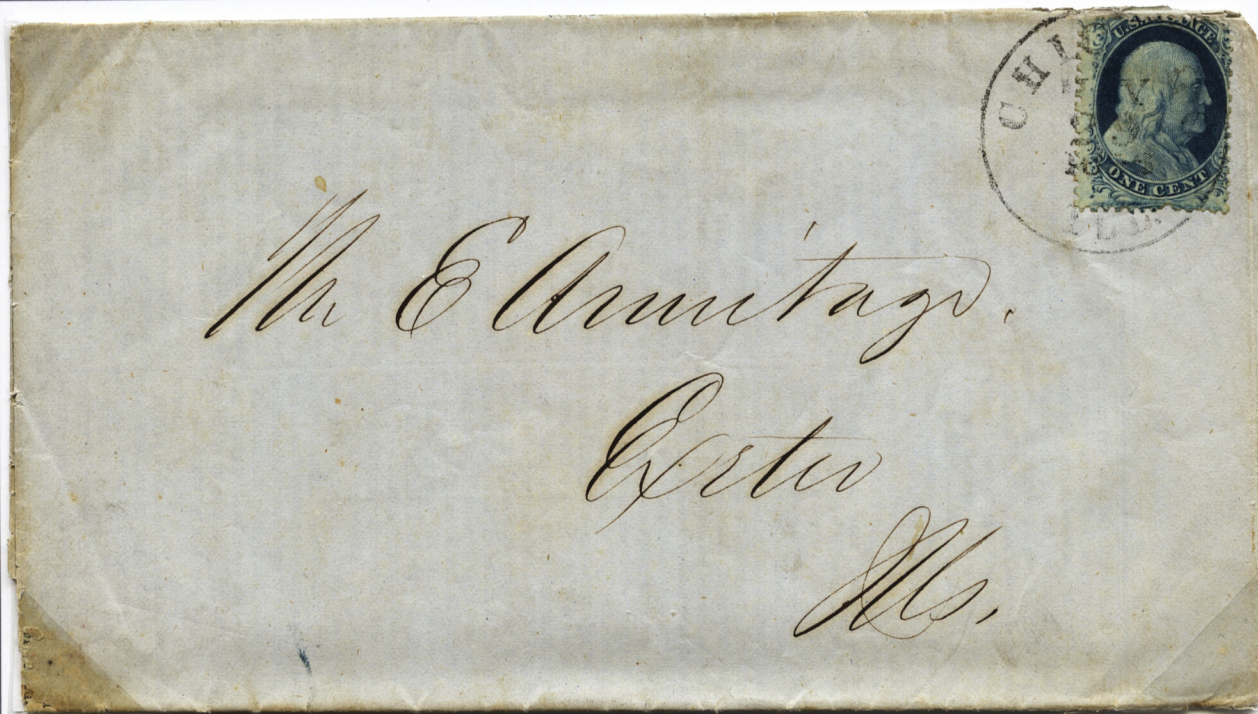 CHI
U.S. POSTAGE
ONE CENT
ILL.
Mr E Armitage.
Exeter
Ills.